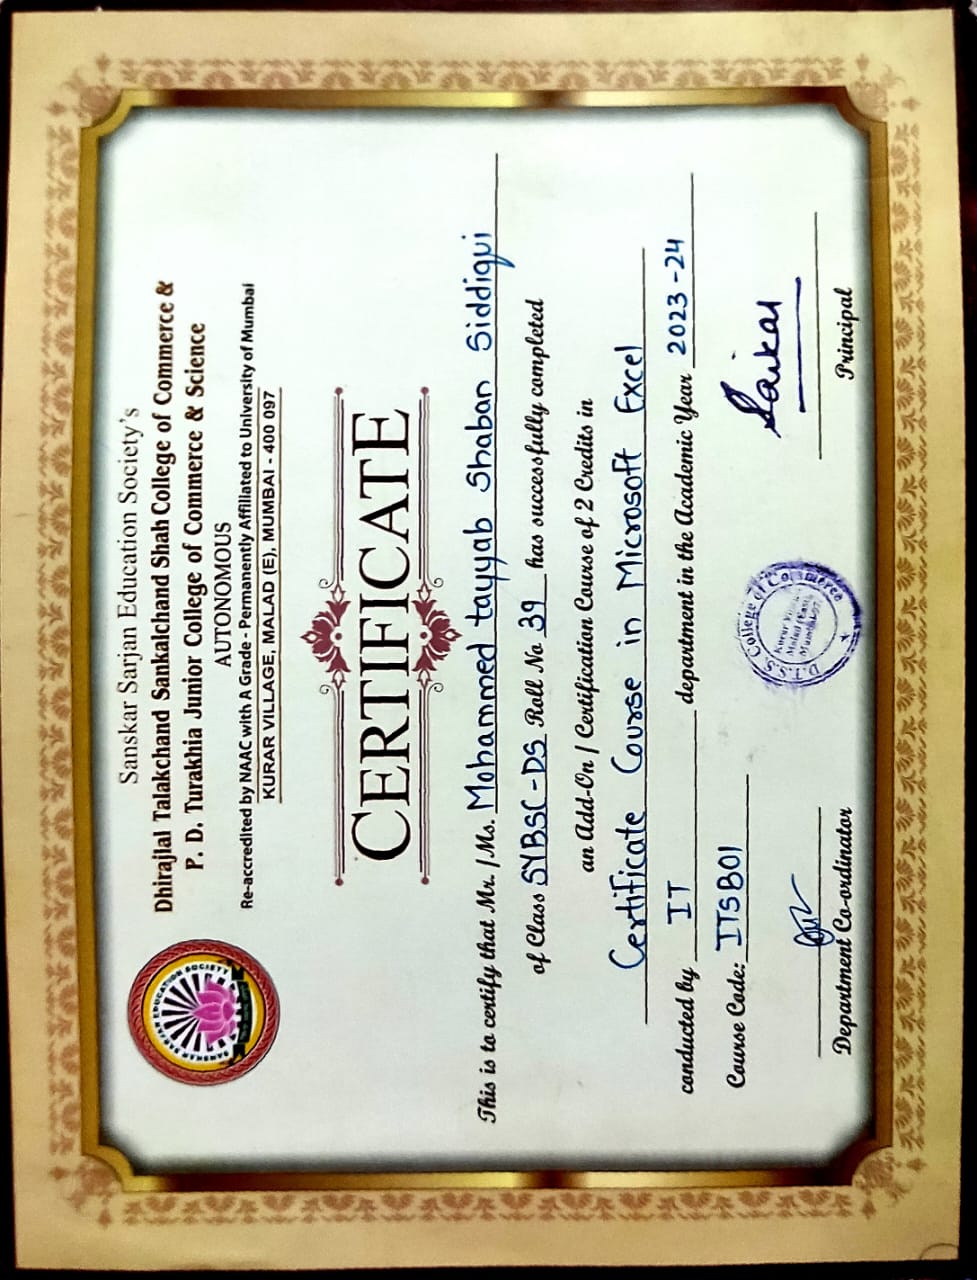 Sanskar Sarjan Education Society's
Dhirajlal Talakchand Sankalchand Shah College of Commerce &
P. D. Turakhia Junior College of Commerce & Science
AUTONOMOUS
Re-accredited by NAAC with A Grade - Permanently Affiliated to University of Mumbai
KURAR VILLAGE, MALAD (E), MUMBAI - 400 097
SANSKAR SARJAN EDUCATION SOCIETY
CERTIFICATE
This is to certify that Mr. / Ms. Mohammed tayyab Shaban Siddiqui
of Class SYBSC-DS Roll No 39 has successfully completed
an Add-On / Certification Course of 2 Credits in
Certificate Course in Microsoft Excel
conducted by IT department in the Academic Year 2023-24
Course Code: ITSB01
D.T.S.S. College of Commerce
Kurar Village
Malad (East)
Mumbai-97
Department Co-ordinator
Principal